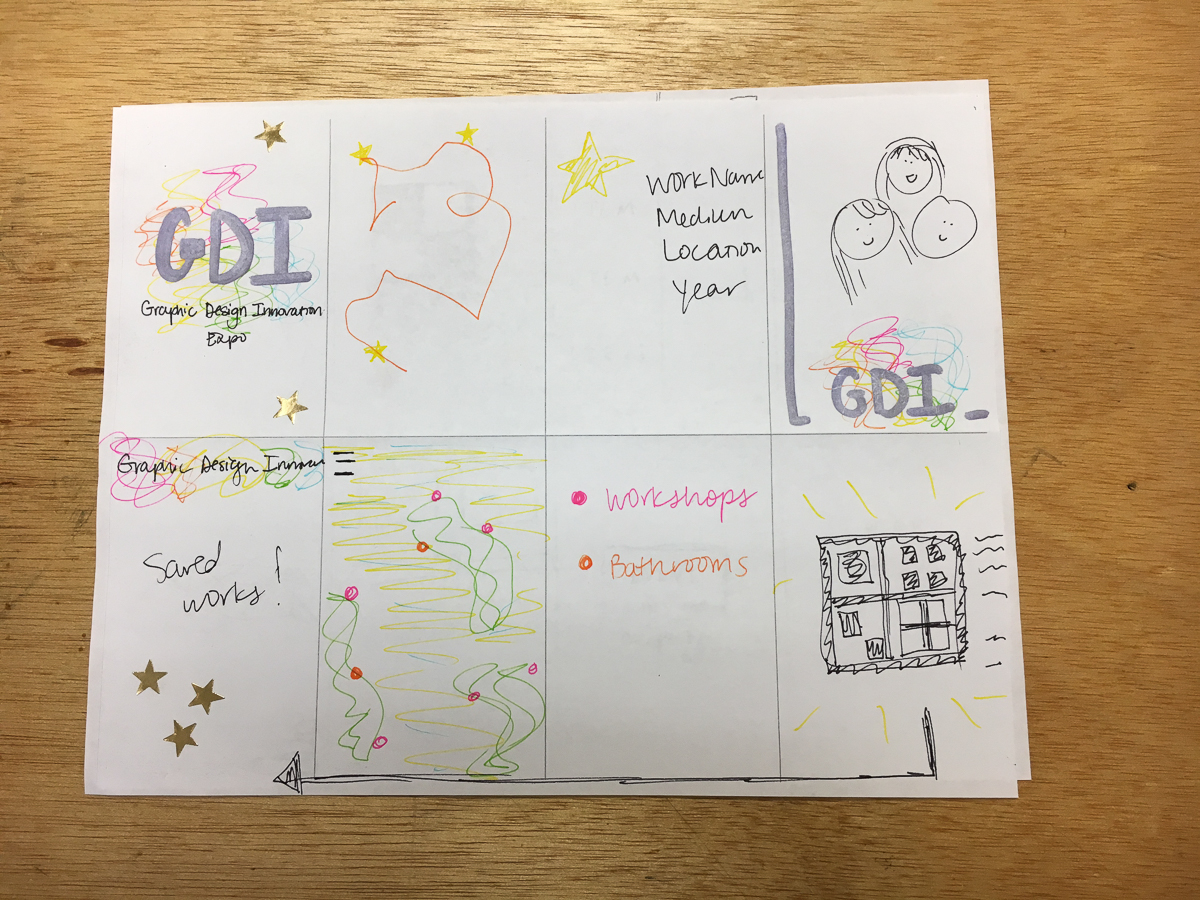 GDI
Graphic Design Innovation
Expo
Work Name
Medium
Location
Year
GDI_
Graphic Design Innov
Saved
works!
Workshops
Bathrooms